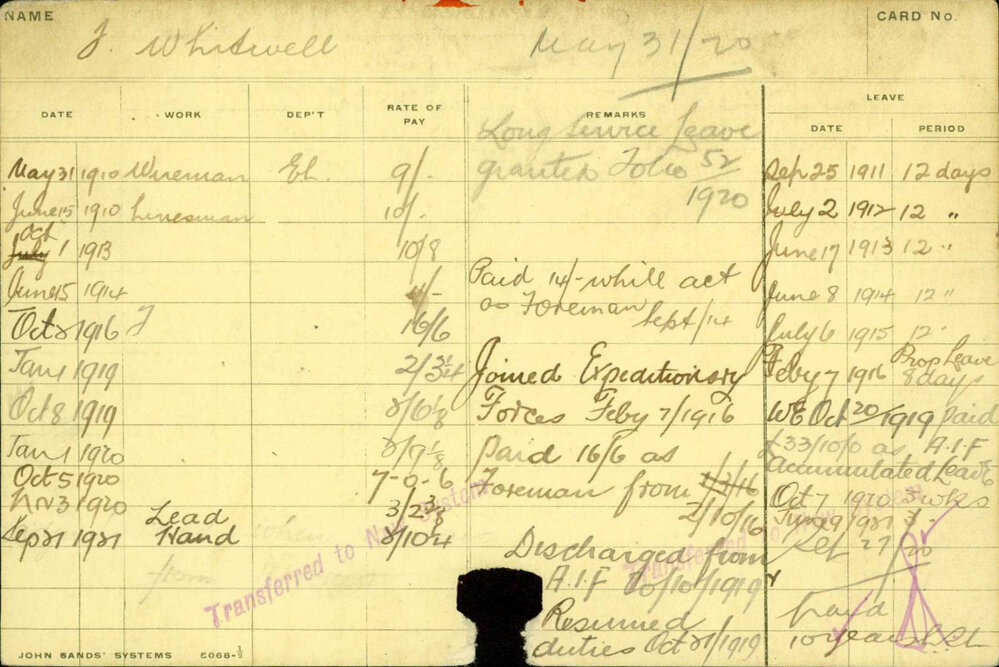 NAME
J. Whitwell
May 31/20
CARD No.
DATE WORK DEP'T RATE OF PAY REMARKS LEAVE
DATE PERIOD
Long Service Leave
granted Folio 52/1920
May 31 1910 Wireman El. 9/-
June 15 1910 Linesman 10/-
Oct
July 1 1913 10/8
June 15 1914
Oct 2 1916 F 16/6
Jan 1 1919 2/3¼
Oct 8 1919
Jan 1 1920
Oct 5 1920 7-0-6
Nov 3 1920 3/2⅜
Sep 21 1921 Lead Hand
Paid 14/- while act
as Foreman
Sept/14
Joined Expeditionary
Forces Feby 7/1916
Paid 16/6 as
Foreman from 1/3/16
2/10/16
Discharged from
A.I.F 10/10/1919
Resumed
duties Oct 21/1919
Sep 25 1911 12 days
July 2 1912 12 "
June 17 1913 12 "
June 8 1914 12 "
July 6 1915 12 "
Feby 7 1916 Prop Leave
8 days
WE Oct 20/1919 paid
£33/10/0 as A.I.F
Accumulated Leave
Oct 7 1920 3 wks
June 9 1921
Set 27/20
paid
10 years
Transferred to New System
Transferred to
JOHN SANDS' SYSTEMS 5068-½